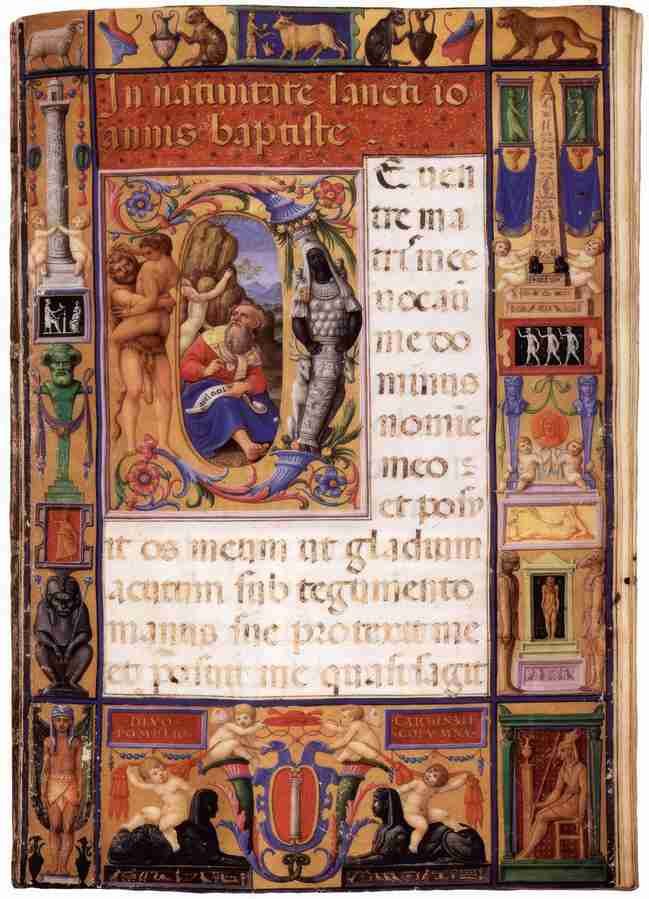 In natiuitate sancti io
annis baptiste .
E uen
tre ma
tris mee
me do
minus
nomie
meo :
et posu
it os meum ut gladium
acutum sub tegumento
manus sue protexit me
et posuit me quasi sagit
DIVO·
POMPEIO
CARDINALI